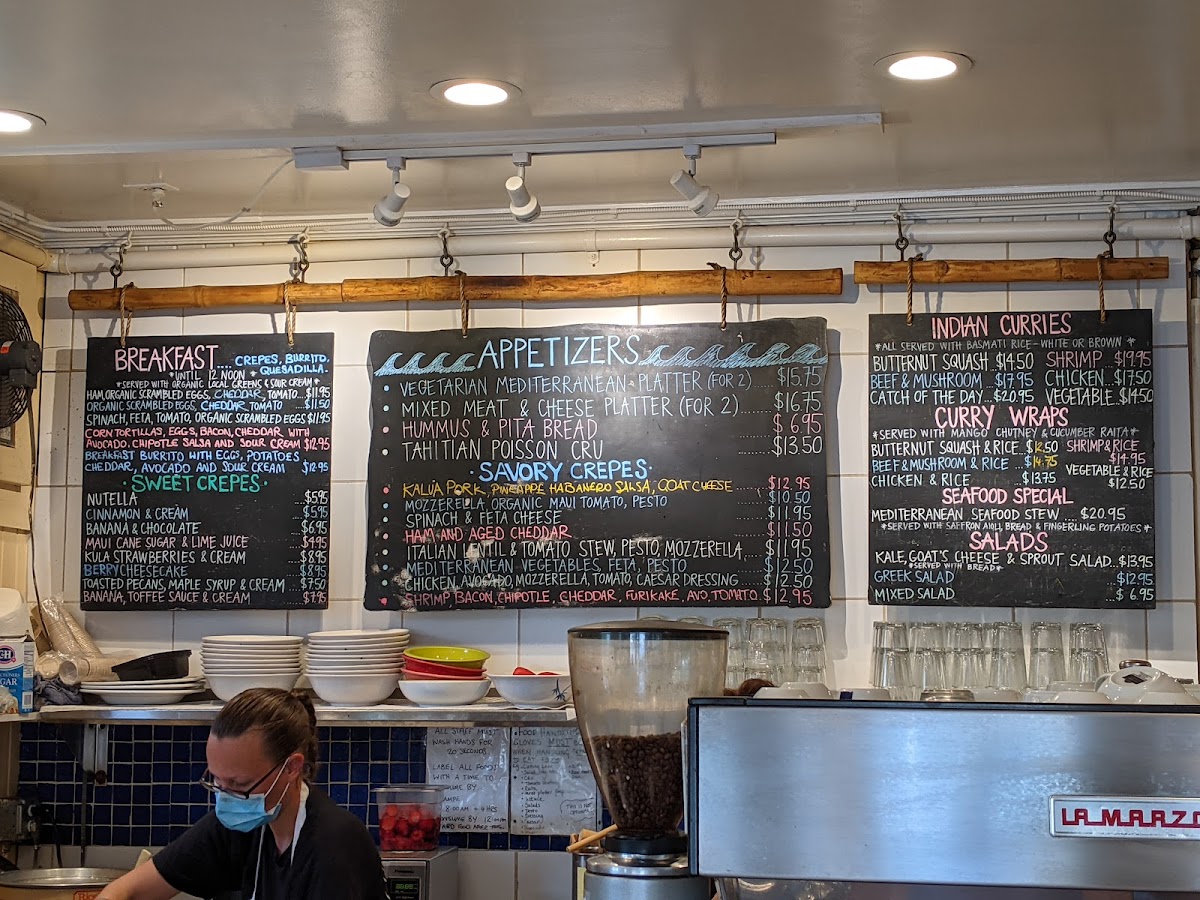 BREAKFAST... CREPES, BURRITO,
QUESADILLA.
*UNTIL 12 NOON*
*SERVED WITH ORGANIC LOCAL GREENS & SOUR CREAM*
HAM, ORGANIC SCRAMBLED EGGS, CHEDDAR, TOMATO...$11.95
ORGANIC SCRAMBLED EGGS, CHEDDAR, TOMATO ...$11.50
SPINACH, FETA, TOMATO, ORGANIC SCRAMBLED EGGS $11.95
CORN TORTILLAS, EGGS, BACON, CHEDDAR WITH
AVOCADO, CHIPOTLE SALSA AND SOUR CREAM $12.95
BREAKFAST BURRITO WITH EGGS, POTATOES
CHEDDAR, AVOCADO AND SOUR CREAM $12.95
·SWEET CREPES·
NUTELLA ...$5.95
CINNAMON & CREAM ...$5.95
BANANA & CHOCOLATE ...$6.95
MAUI CANE SUGAR & LIME JUICE ...$4.95
KULA STRAWBERRIES & CREAM ...$8.95
BERRY CHEESECAKE ...$8.95
TOASTED PECANS, MAPLE SYRUP & CREAM ...$7.50
BANANA, TOFFEE SAUCE & CREAM ...$7.95
APPETIZERS
• VEGETARIAN MEDITERRANEAN PLATTER (FOR 2)...$15.75
• MIXED MEAT & CHEESE PLATTER (FOR 2)...$16.75
• HUMMUS & PITA BREAD ...$6.95
• TAHITIAN POISSON CRU ...$13.50
·SAVORY CREPES·
• KALUA PORK, PINEAPPLE HABANERO SALSA, GOAT CHEESE ...$12.95
• MOZZERELLA, ORGANIC MAUI TOMATO, PESTO ...$10.50
• SPINACH & FETA CHEESE ...$11.95
• HAM AND AGED CHEDDAR ...$11.50
• ITALIAN LENTIL & TOMATO STEW, PESTO, MOZZERELLA...$11.95
• MEDITERRANEAN VEGETABLES, FETA, PESTO ...$12.50
• CHICKEN, AVOCADO, MOZZERELLA, TOMATO, CAESAR DRESSING ...$12.50
• SHRIMP, BACON, CHIPOTLE, CHEDDAR, FURIKAKE, AVO, TOMATO. $12.95
INDIAN CURRIES
*ALL SERVED WITH BASMATI RICE-WHITE OR BROWN*
BUTTERNUT SQUASH $14.50 SHRIMP...$19.95
BEEF & MUSHROOM ...$17.95 CHICKEN...$17.50
CATCH OF THE DAY...$20.95 VEGETABLE...$14.50
CURRY WRAPS
*SERVED WITH MANGO CHUTNEY & CUCUMBER RAITA*
BUTTERNUT SQUASH & RICE...$12.50 SHRIMP & RICE
BEEF & MUSHROOM & RICE ...$14.75 $14.95
CHICKEN & RICE ...$13.75 VEGETABLE & RICE
$12.50
SEAFOOD SPECIAL
MEDITERRANEAN SEAFOOD STEW ...$20.95
*SERVED WITH SAFFRON AIOLI, BREAD & FINGERLING POTATOES*
SALADS
KALE, GOAT'S CHEESE & SPROUT SALAD...$13.95
*SERVED WITH BREAD*
GREEK SALAD $12.95
MIXED SALAD ...$6.95
ALL STAFF MUST
WASH HANDS FOR
20 SECONDS
LABEL ALL FOODS
WITH A TIME TO
LA MARZO